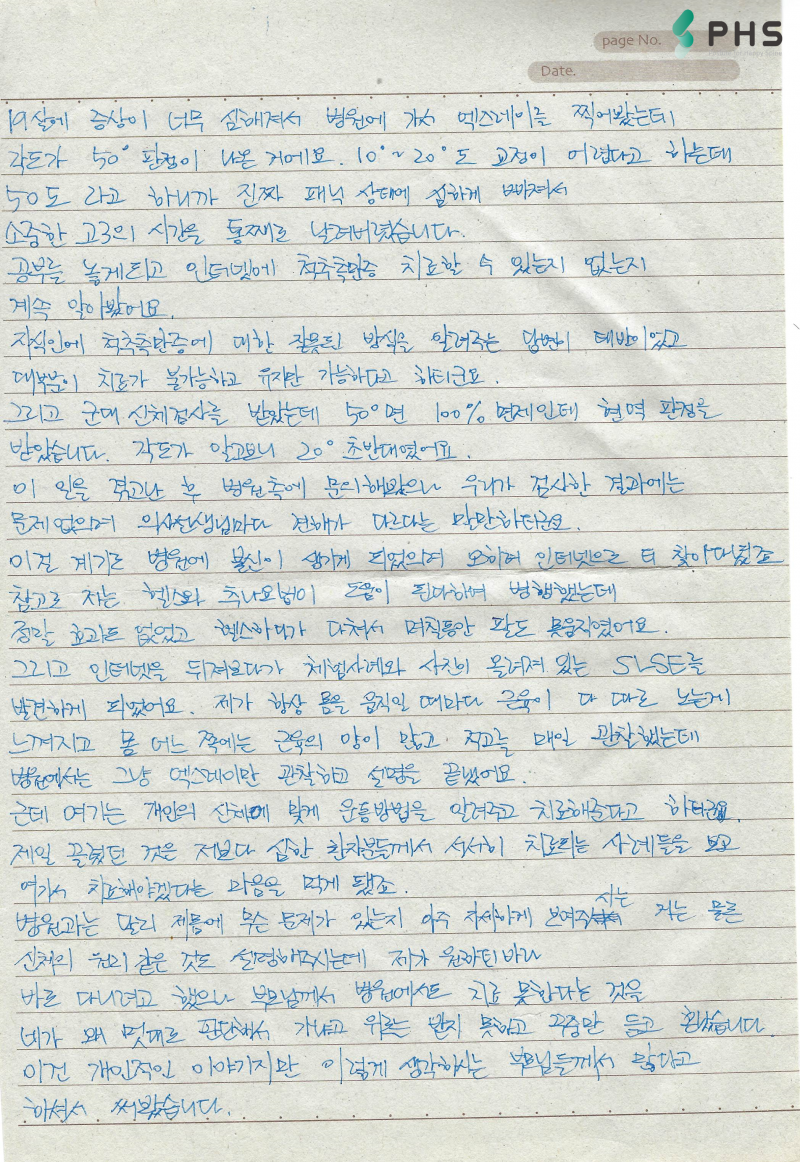 page No.
PHS
Date.
19살에 증상이 너무 심해져서 병원에 가서 엑스레이를 찍어봤는데
각도가 50° 판정이 나온 거에요. 10°~20°도 교정이 어렵다고 하는데
50도 라고 하니까 진짜 패닉 상태에 심하게 빠져서
소중한 고3의 시간을 통째로 날려버렸습니다.
공부는 놓게되고 인터넷에 척추측만증 치료할 수 있는지 없는지
계속 알아봤어요.
지식인에 척추측만증에 대한 잘못된 방식을 알려주는 답변이 태반이었고
대부분이 치료가 불가능하고 유지만 가능하다고 하더군요.
그리고 군대 신체검사를 받았는데 50°면 100% 면제인데 현역 판정을
받았습니다. 각도가 알고보니 20° 초반대였어요.
이 일을 겪고난 후 병원측에 문의해봤으나 우리가 검사한 결과에는
문제없으며 의사선생님마다 견해가 다르다는 말만하더군요.
이걸 계기로 병원에 불신이 생기게 되었으며 오히려 인터넷으로 더 찾아다녔죠
참고로 저는 헬스와 추나요법이 도움이 된다하여 병행했는데
정말 효과도 없었고 헬스하다가 다쳐서 며칠동안 팔도 못움직였어요.
그리고 인터넷을 뒤져보다가 체험사례와 사진이 올려져 있는 SLSE를
발견하게 되었어요. 제가 항상 몸을 움직일 때마다 근육이 다 따로 노는게
느껴지고 몸 어느 쪽에는 근육의 양이 많고 적고를 매일 관찰했는데
병원에서는 그냥 엑스레이만 관찰하고 설명을 끝냈어요.
근데 여기는 개인의 신체에 맞게 운동방법을 알려주고 치료해준다고 하더군요.
제일 끌렸던 것은 저보다 심한 환자분들께서 서서히 치료되는 사례들을 보고
여기서 치료해야겠다는 마음을 먹게 됐죠.
병원과는 달리 제몸에 무슨 문제가 있는지 아주 자세하게 보여주시는 거는 물론
신체의 원리 같은 것도 설명해주시는데 제가 원하던바라
바로 다니려고 했으나 부모님께서 병원에서도 치료 못한다는 것을
네가 왜 멋대로 판단해서 가냐고 위로는 받지 못하고 꾸중만 듣고 왔습니다.
이건 개인적인 이야기지만 이렇게 생각하시는 부모님들께서 많다고
하셔서 써봤습니다.